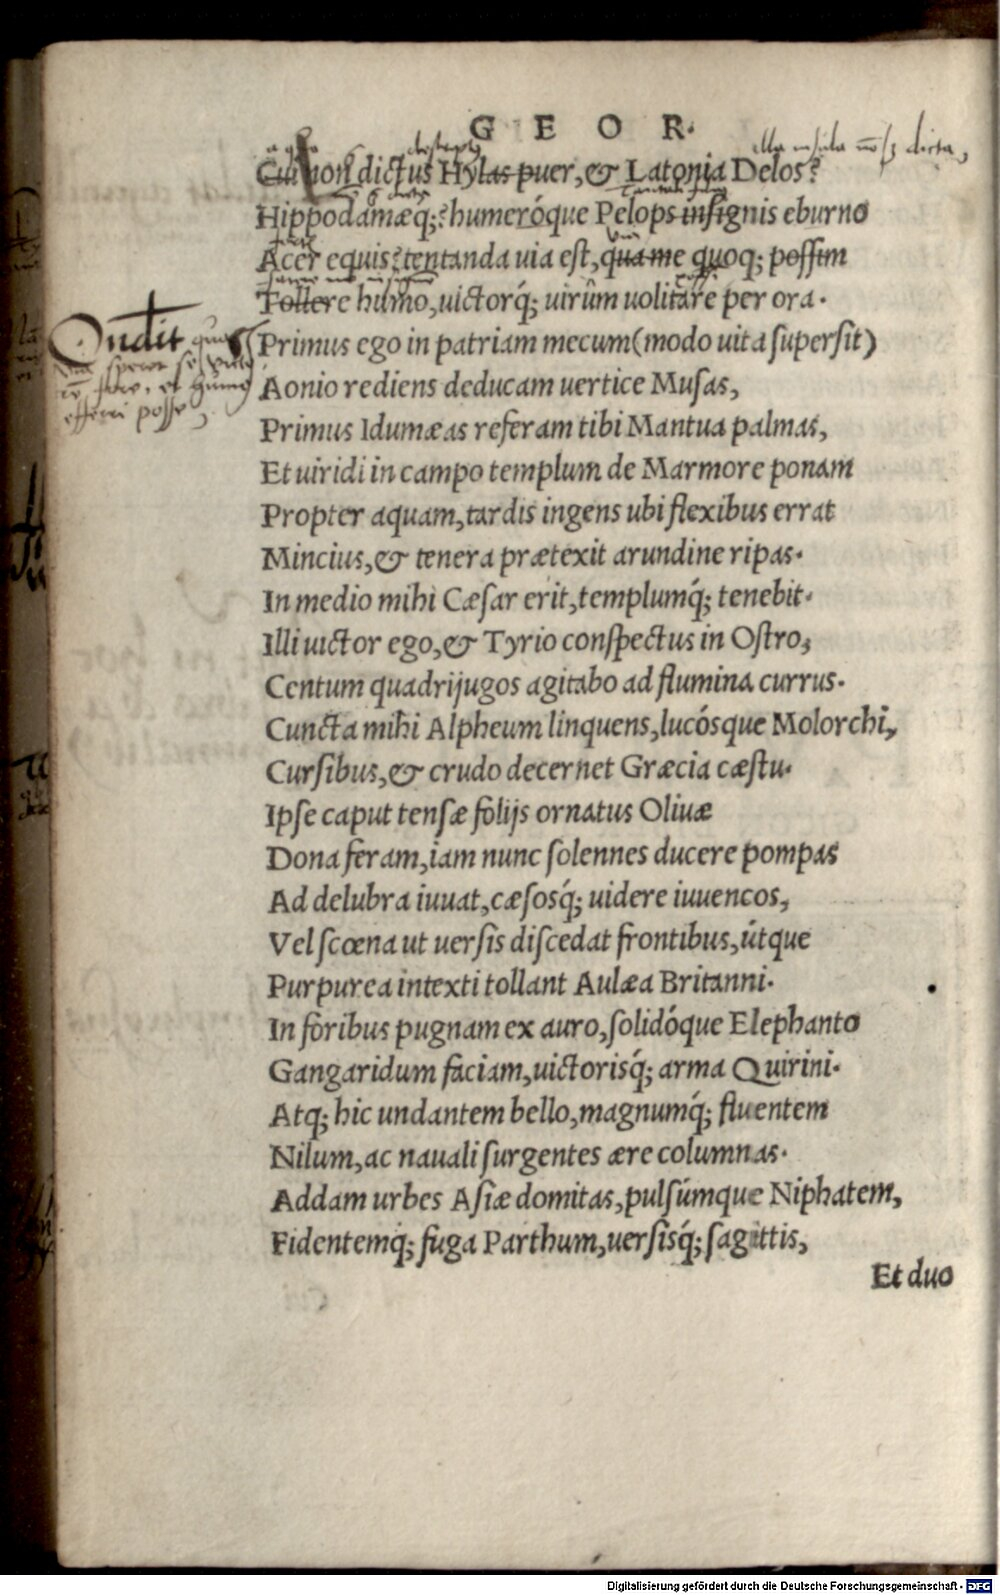 GEOR.
illa insula dicta,
Cui non dictus Hylas puer, & Latonia Delos?
Hippodamæq́;? humeróque Pelops insignis eburno
Acer equis? tentanda uia est, qua me quoq; possim
Tollere humo, uictorq́; uirûm uolitare per ora.
Primus ego in patriam mecum (modo uita supersit)
Aonio rediens deducam uertice Musas,
Primus Idumæas referam tibi Mantua palmas,
Et uiridi in campo templum de Marmore ponam
Propter aquam, tardis ingens ubi flexibus errat
Mincius, & tenera prætexit arundine ripas.
In medio mihi Cæsar erit, templumq́; tenebit.
Illi uictor ego, & Tyrio conspectus in Ostro,
Centum quadrijugos agitabo ad flumina currus.
Cuncta mihi Alpheum linquens, lucósque Molorchi,
Cursibus, & crudo decernet Græcia cæstu.
Ipse caput tensæ folijs ornatus Oliuæ
Dona feram, iam nunc solennes ducere pompas
Ad delubra iuuat, cæsosq́; uidere iuuencos,
Vel scœna ut uersis discedat frontibus, útque
Purpurea intexti tollant Aulæa Britanni.
In foribus pugnam ex auro, solidóque Elephanto
Gangaridum faciam, uictorisq́; arma Quirini.
Atq; hic undantem bello, magnumq́; fluentem
Nilum, ac nauali surgentes ære columnas.
Addam urbes Asiæ domitas, pulsúmque Niphatem,
Fidentemq́; fuga Parthum, uersisq́; sagittis,
Et duo
Digitalisierung gefördert durch die Deutsche Forschungsgemeinschaft - DFG